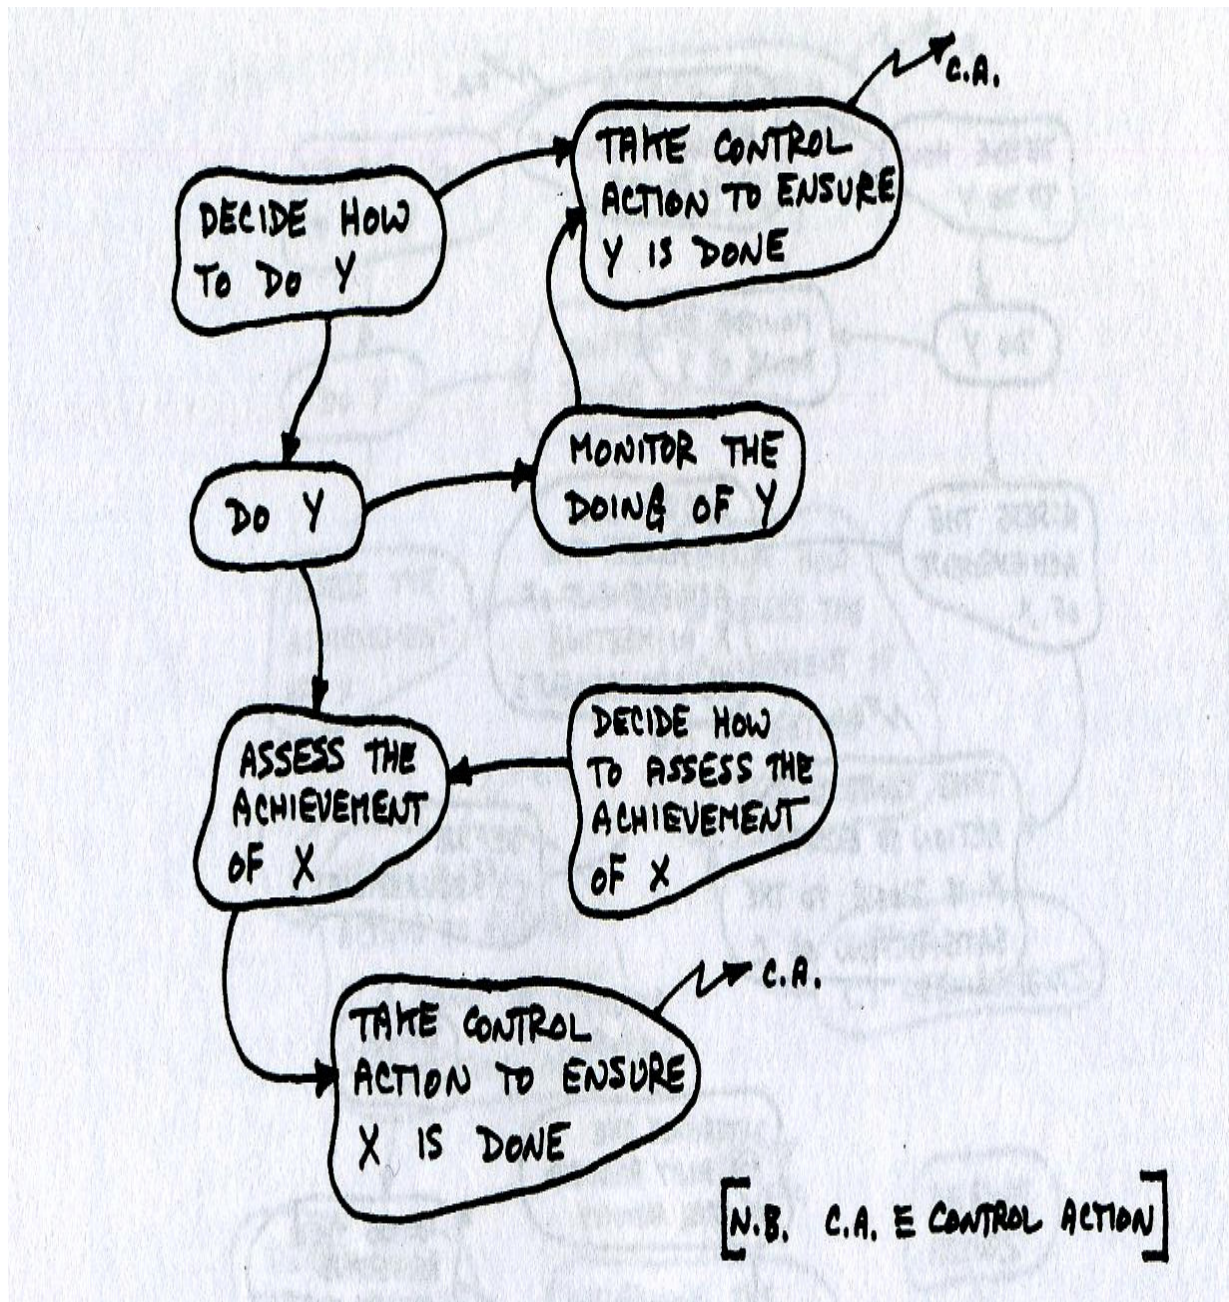 C.A.
TAKE CONTROL
ACTION TO ENSURE
Y IS DONE
DECIDE HOW
TO DO Y
MONITOR THE
DOING OF Y
DO Y
DECIDE HOW
TO ASSESS THE
ACHIEVEMENT
OF X
ASSESS THE
ACHIEVEMENT
OF X
C.A.
TAKE CONTROL
ACTION TO ENSURE
X IS DONE
[N.B. C.A. ≡ CONTROL ACTION]